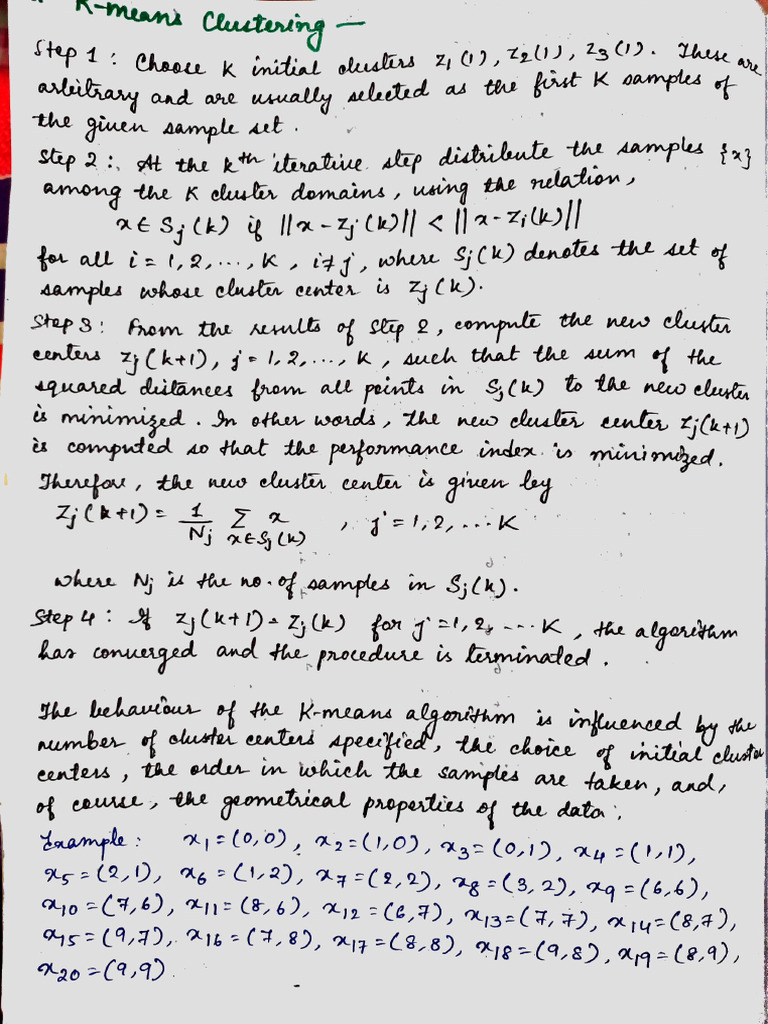 K-means Clustering —
Step 1 : Choose K initial clusters z₁(1), z₂(1), z₃(1). These are
arbitrary and are usually selected as the first K samples of
the given sample set.
Step 2 : At the kth iterative step distribute the samples {x}
among the K cluster domains, using the relation,
x ∈ Sj(k) if ||x - zj(k)|| < ||x - zi(k)||
for all i = 1, 2, ..., K, i ≠ j, where Sj(k) denotes the set of
samples whose cluster center is zj(k).
Step 3 : From the results of Step 2, compute the new cluster
centers zj(k+1), j = 1, 2, ..., K, such that the sum of the
squared distances from all points in Sj(k) to the new cluster
is minimized. In other words, the new cluster center zj(k+1)
is computed so that the performance index is minimized.
Therefore, the new cluster center is given by
zj(k+1) = 1/Nj Σ x∈Sj(k) x , j = 1, 2, ... K
where Nj is the no. of samples in Sj(k).
Step 4 : If zj(k+1) = zj(k) for j = 1, 2, --- K, the algorithm
has converged and the procedure is terminated.
The behaviour of the K-means algorithm is influenced by the
number of cluster centers specified, the choice of initial cluster
centers, the order in which the samples are taken, and,
of course, the geometrical properties of the data.
Example : x₁ = (0,0), x₂ = (1,0), x₃ = (0,1), x₄ = (1,1),
x₅ = (2,1), x₆ = (1,2), x₇ = (2,2), x₈ = (3,2), x₉ = (6,6),
x₁₀ = (7,6), x₁₁ = (8,6), x₁₂ = (6,7), x₁₃ = (7,7), x₁₄ = (8,7),
x₁₅ = (9,7), x₁₆ = (7,8), x₁₇ = (8,8), x₁₈ = (9,8), x₁₉ = (8,9),
x₂₀ = (9,9)